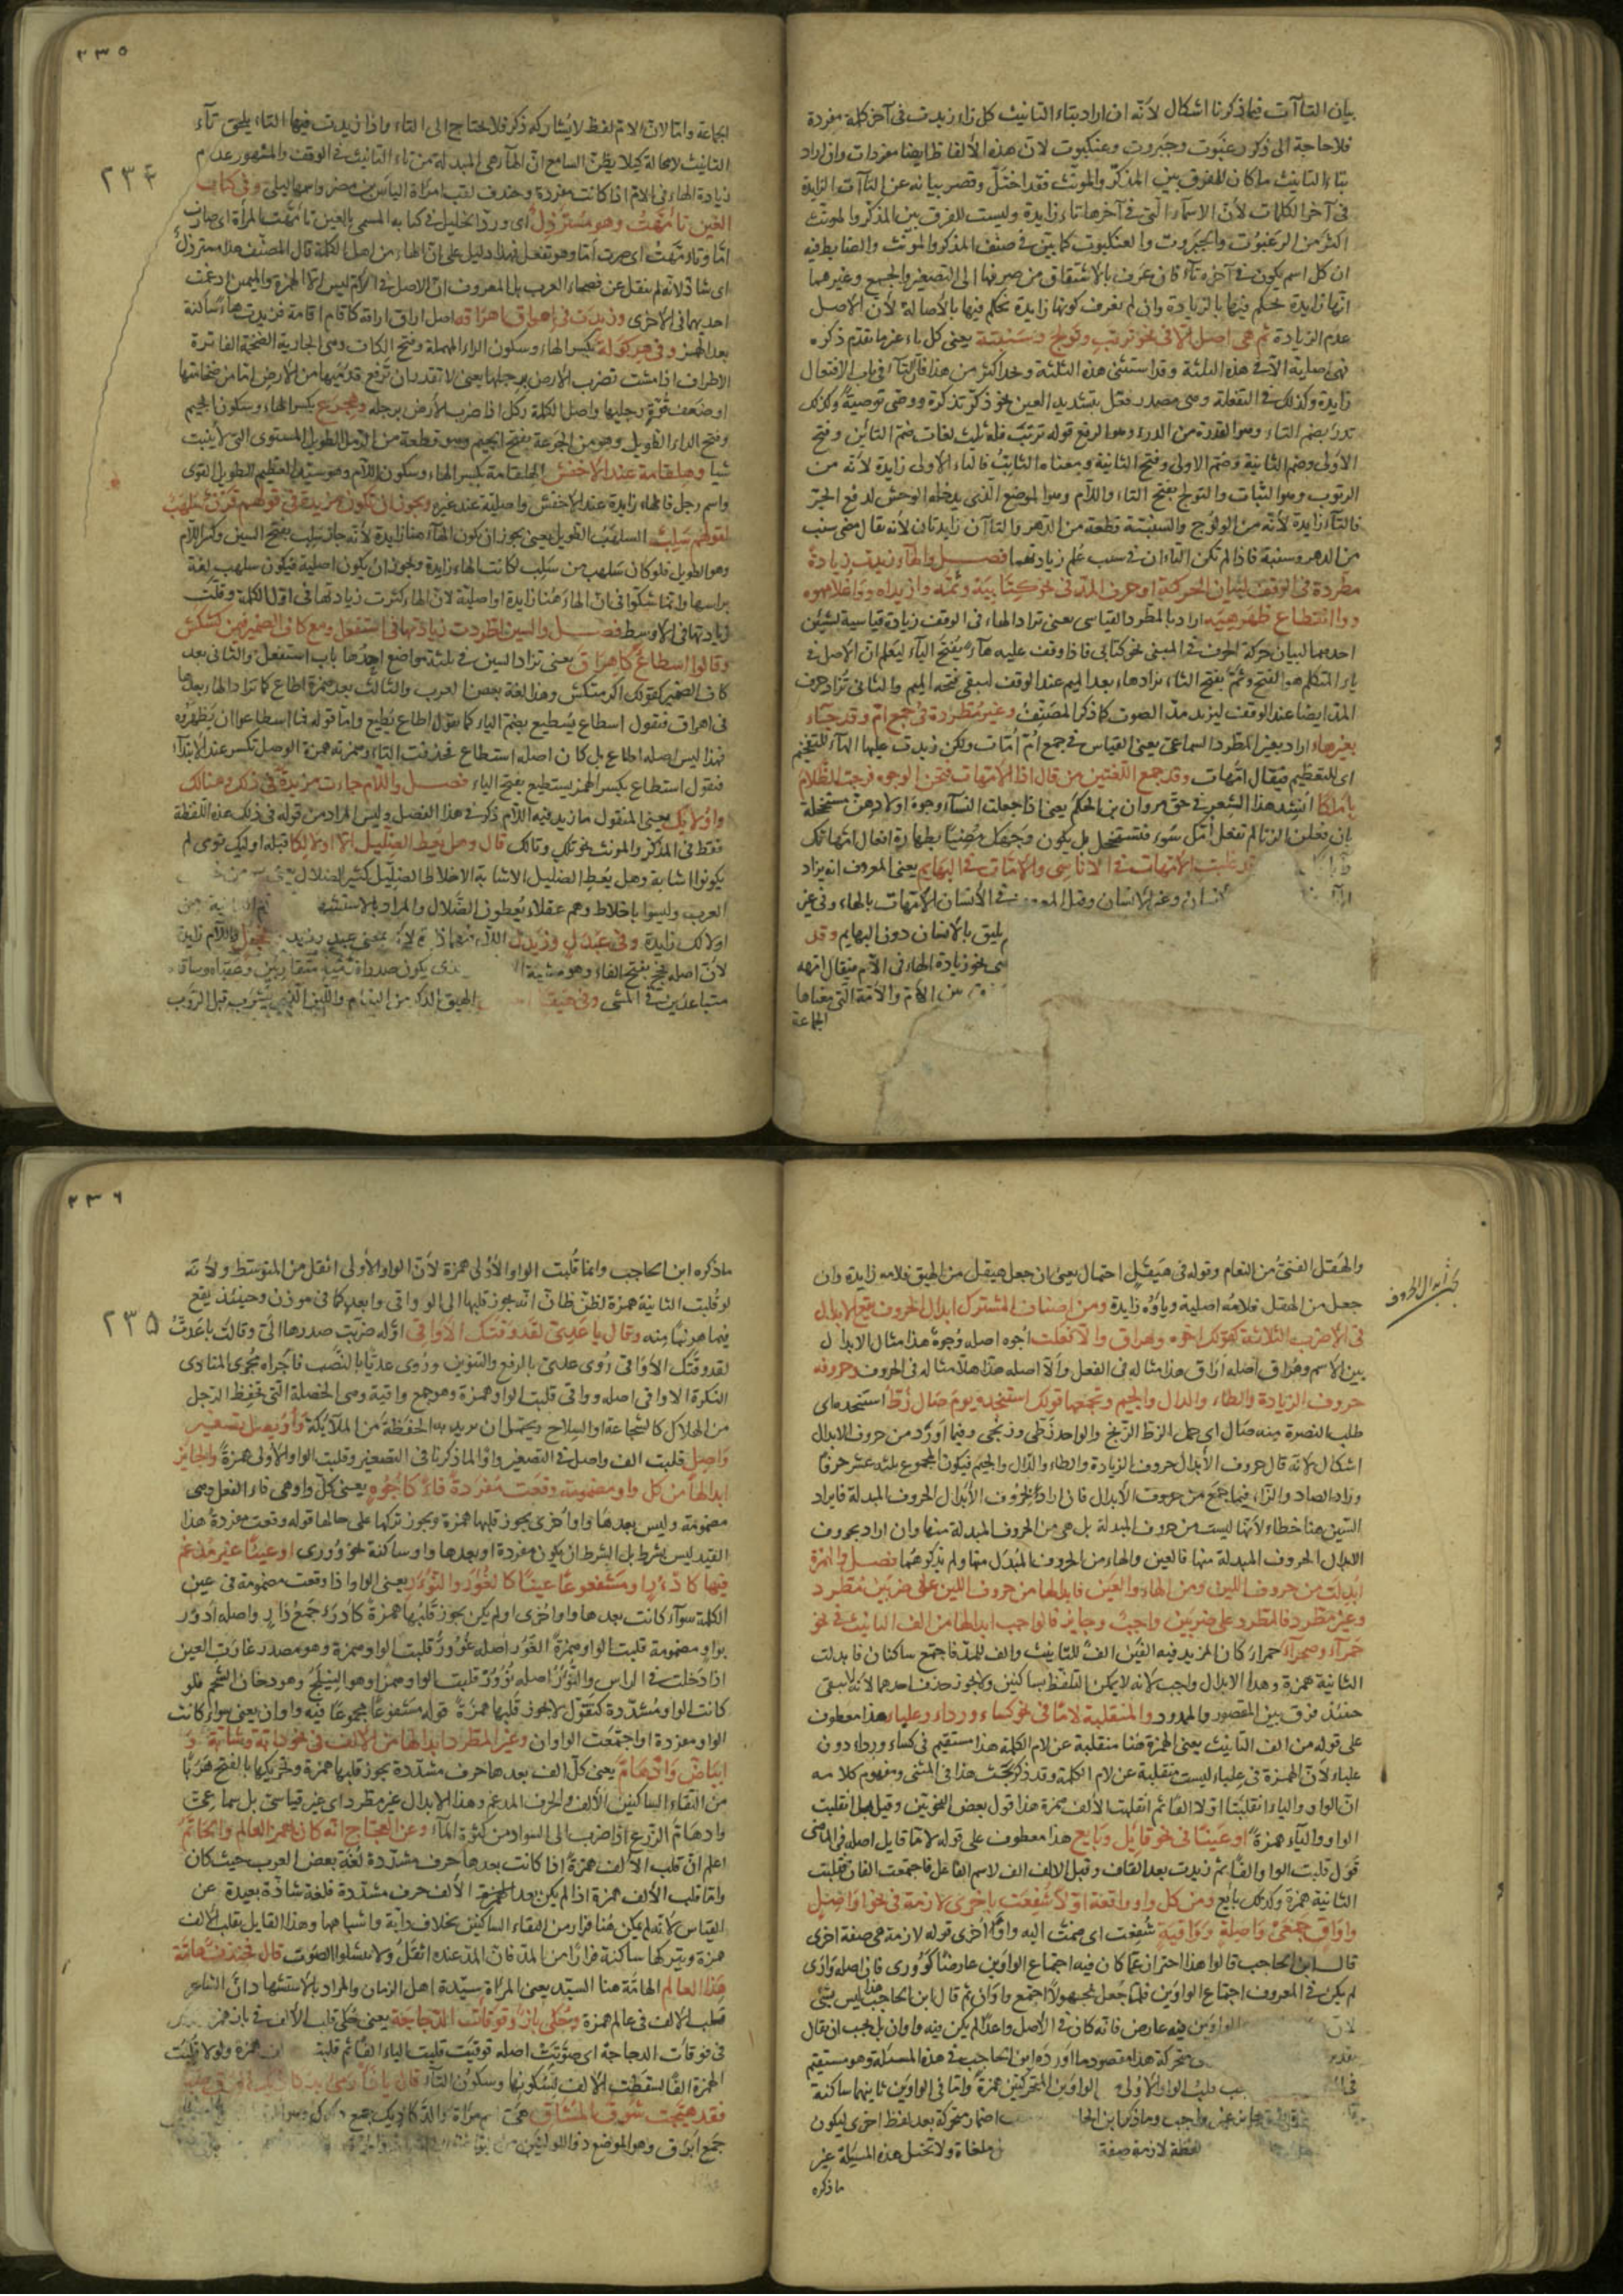 بيان التاآت فيما ذكرنا اشكال لأنّه ان اراد بتاء التانيث كل تاء زيدت فى آخر كلمة مفردة
فلا حاجة الى ذكر رغبوت وجبروت وعنكبوت لان هذه الألفاظ ايضا مفردات وان اراد
بتاء التانيث ما كان للفرق بين المذكّر والمؤنّث فقد اختلّ وقصر بيانه عن التاآت الزايدة
فى آخر الكلمات لأن الاسماء الّتى فى آخرها تاء زايدة وليست للفرق بين المذكّر والمونّث
اكثر من الرغبوت والجبروت والعنكبوت كما بيّن فى صنف المذكر والمونّث والضابط فيه
ان كل اسم يكون فى آخره تاء فان عرف بالاشتقاق من صرفها الى التصغير والجمع وغيرهما
انّها زايدة نحكم فيها بالزيادة وان لم نعرف كونها زايدة نحكم فيها بالأصالة لأنّ الاصل
عدم الزيادة ثم هى اصل الا فى نحو ترتب وتولج وسنبتة يعنى كل تاء غير ما تقدّم ذكره
فهى اصلية الّا فى هذه الثلثة وقد استثنى هذه الثلثة ونجد اكثر من هذا فان التاء فى باب الافتعال
زايدة وكذلك فى التفعلة وهى مصدر فعّل بتشديد العين نحو ذكّر تذكرة ووصّى توصية وكذلك
تدرأ بضم التاء وهو القدرة من الدرء وهو الرفع قوله ترتب فله ثلث لغات ضم التائين وفتح
الأولى وضم الثانية وضم الاولى وفتح الثانية ومعناه الثابت فالتاء الاولى زايدة لأنه من
الرتوب وهو الثبات والتولج بفتح التاء واللّام وهو الموضع الّذى يدخله الوحش لدفع الحرّ
فالتاء زايدة لأنّه من الولوج والسنبتة قطعة من الدهر والتاآن زايدتان لأنه يقال مضى سنب
من الدهر وسنبة فاذا لم تكن التاءان فى سنب علم زيادتهما فصل والهاء زيدت زيادة
مطردة فى الوقف لبيان الحركة او حرف المدّ فى نحو كتابيه وثمّه وازيداه وواغلامهوه
ووا انقطاع ظهرهيه اراد بالمطرد القياسى يعنى تزاد الهاء فى الوقف زيادة قياسية لشيئين
احدهما لبيان حركة الحرف فى المبنى نحو كتابى فاذا وقف عليه هاء بفتح الياء ليعلم انّ الأصل فى
ياء المتكلم هو الفتح وثمّ بفتح الثاء تزاد هاء بعد الميم عند الوقف ليبقى فتحه الميم والثانى تزاد حرف
المدّ ايضا عند الوقف ليزيد مدّ الصوت كما ذكر المصنّف وغير مطردة فى جمع امّ وقد جاء
بغير هاء اراد بغير المطرد السماعى يعنى القياس فى جمع امّ امّات ولكن زيدت عليها الهاء للتفخيم
اى للتعظيم فيقال امّهات وقد جمع اللغتين من قال اذا الامّهات قبحن الوجوه فرجت الظّلام
بأمّاتكا انشد هذا الشعر فى حقّ مروان بن الحكم يعنى اذا جعلت النساء وجوه اولادهنّ مستخجلة
بان فعلن الزنا لم تفعل امّك سوء فتستخجل بل يكون وجهك مضيئا بطهارة افعال امّهاتك
غلبت الأمّهات فى الاناسى والأمّات فى البهايم يعنى المعروف انه يزاد
فى الأنسان الأمّهات بالهاء وفى غير
يليق بالأنسان دون البهايم وقد
نحو زيادة الهاء فى الامّ فيقال امّهه
بين الأمّ والأمّة الّتى معناها
الجماعة
٢٣٥
٢٣٤
الجماعة وامّا لان الامّ لفظ لا يشاركه ذكر فلا يحتاج الى التاء واذا زيدت فيها التاء يلحق تاء
التانيث لا محالة كيلا يظنّ السامع انّ الهاء هى المبدلة من تاء التانيث فى الوقف والمشهور عدم
زيادة الهاء فى الامّ اذا كانت مفردة وخندف لقب امراة الياس بن مضر واسمها ليلى وفى كتاب
العين تأمّهت وهو مسترذل اى ورد الخليل فى كتابه المسمى بالعين تأمّهت المرأة اى صارت
امّا وتأمّهت اى صرت امّا وهو تفعل فهذا دليل على ان الهاء من اصل الكلمة قال المصنّف هذا مسترذل
اى شاذ لانّه لم ينقل عن فصحاء العرب بل المعروف انّ الاصل فى الامّ ليس الّا الهمزة والميمين ادغمت
احديهما فى الاخرى وزيدت فى اهراق اهراقة اصل اراق اراقة كاقام اقامة فزيدت هاء ساكنة
بعد الهمزة وفى هركولة بكسر الهاء وسكون الراء المهملة وفتح الكاف وهى الجارية الضخمة الفاترة
الاطراف اذا مشت تضرب الأرض برجلها يعنى لا تقدر ان ترفع قدميها من الأرض امّا من ضخامتها
او ضعف قوّة رجليها واصل الكلمة ركل اذا ضرب الأرض برجله وهجرع بكسر الهاء وسكون الجيم
وفتح الراء الطويل وهو من الجرعة بفتح الجيم وهو قطعة من الرمل الطويل المستوى التى لا ينبت
شيا وهلقامة عند الأخفش الهلقامة بكسر الهاء وسكون اللّام وهو سيّد العظيم الطويل القوى
واسم رجل فالهاء زايدة عند الأخفش واصلية عند غيره ويجوز ان تكون مزيدة فى قولهم قرن سلهب
لقولهم سلب السلهب الطويل يعنى يجوز ان يكون الهاء هنا زايدة لأنّه جاء سلب بفتح السين وكسر اللام
وهو الطويل فلو كان سلهب من سلب لكانت الهاء زايدة ويجوز ان يكون اصلية فيكون سلهب لغة
براسها وانّما شكّوا فى انّ الهاء هنا زايدة او اصلية لانّ الهاء كثرت زيادتها فى اوّل الكلمة وقلّت
زيادتها فى الأوسط فصل والسين اطردت زيادتها فى استفعل ومع كاف الضمير فيمن كسكس
وقالوا اسطاع كاهراق يعنى تزاد السين فى ثلثة مواضع احدها باب استفعل والثانى بعد
كاف الضمير كقولك اكرمتكس وهذا لغة بعض العرب والثالث بعد همزة اطاع كما تزاد الهاء بعدها
فى اهراق فتقول اسطاع يسطيع بضم الياء كما تقول اطاع يطيع وامّا قوله فما اسطاعوا ان يظهروه
فهذا ليس اصله اطاع بل كان اصله استطاع فحذفت التاء وهمزته همزة الوصل تكسر عند الابتداء
فتقول استطاع بكسر الهمز يستطيع بفتح الياء فصل واللّام جاءت مزيدة فى ذلك وهنالك
واولالك يعنى المنقول ما زيد فيه اللّام ذكر فى هذا الفصل وليس المراد من قوله فى ذلك هذه اللفظة
فقط فى المذكّر والمونث نحو تلك وتالك قال وهل يعظ الضلّيل الّا اولالكا قبله اولئك قومى لم
يكونوا اشابة وهل يعظ الضلّيل الاشابة الاخلاط الضلّيل كثير الضلال
العرب وليسوا باخلاط وهم عقلاء يعظون الضّلال والمراد بالاستشهاد
اولالك زايدة وفى عبدل وزيدل بمعنى عبد وزيد فحجل فاللّام زايدة
لأنّ اصله فحج بفتح الفاء وهو مشية يكون صدورا قدميه متقاربين وعقباه وساقاه
متباعدين فى المشى وفى هيقل الهيق الذكر من النعام
والهقل الفتىّ من النعام وقوله فى هيقل احتمال يعنى ان جعل هيقل من الهيق فلامه زايدة وان
بحث ابدال الحروف
جعل من الهقل فلامه اصلية وياؤه زايدة ومن اصناف المشترك ابدال الحروف يقع الابدال
فى الأضرب الثلاثة كقولك اجوه وهراق والا فعلت اجوه اصله وجوه هذا مثال الابدال
بين الاسم وهراق اصله اراق هذا مثاله فى الفعل وألّا اصله هلّا هذا مثاله فى الحروف وحروفه
حروف الزيادة والطاء والدال والجيم ويجمعها قولك استنجده يوم صال زطّ استنجده اى
طلب النصرة منه صال اى حمل الزط الزنج والواحد زطّى وزنجى وفيما اورد من حروف الابدال
اشكال لانّه قال حروف الأبدال حروف الزيادة والطاء والدال والجيم فيكون المجموع ثلثة عشر حرفا
وزاد الصاد والزاء فيما جمع من حروف الأبدال فان اراد بحروف الأبدال الحروف المبدلة فايراد
السّين هنا خطاء لأنّها ليست من حروف المبدلة بل هى من الحروف المبدلة منها وان اراد بحروف
الابدال الحروف المبدلة منها فالعين والهاء من الحروف المبدل منها ولم يذكرهما فصل والهمزة
ابدلت من حروف اللين ومن الهاء والعين فابدالها من حروف اللين على ضربين مطرد
وغير مطرد فالمطرد على ضربين واجب وجايز فالواجب ابدالها من الف التانيث فى نحو
حمراء وصحراء حمراء كان المزيد فيه الفين الف للتانيث والف للمدّ فاجتمع ساكنان فابدلت
الثانية همزة وهذا الابدال واجب لانه لا يمكن التلفّظ بساكنين ولا يجوز حذف احدهما لأنّه لا يبقى
حينئذ فرق بين المقصور والممدود والمنقلبة لاما فى نحو كساء ورداء وعلباء هذا معطوف
على قوله من الف التانيث يعنى الهمزة هنا منقلبة عن لام الكلمة هذا مستقيم فى كساء ورداء دون
علباء لأنّ الهمزة فى علباء ليست منقلبة عن لام الكلمة وقد ذكر بحث هذا فى المثنّى ومفهوم كلامه
انّ الواو والياء انقلبتا اوّلا الفا ثم انقلبت الألف همزة هذا قول بعض النحويّين وقيل بل انقلبت
الواو والياء همزة او عينا فى نحو قائل وبايع هذا معطوف على قوله لاما قايل اصله فى الماضى
قول قلبت الواو الفا ثم زيدت بعد القاف وقبل الالف الف لاسم الفاعل فاجتمعت الفان فقلبت
الثانية همزة وكذلك بائع ومن كل واو واقعة اوّلا شفعت باخرى لازمة فى نحو اواصل
واواق جمعى واصلة وواقية شفعت اى ضمت اليه واو اخرى قوله لازمة هى صفة اخرى
قال ابن الحاجب قالوا هذا احتراز عمّا كان فيه اجتماع الواوين عارضا كوورى فان اصله وارى
لم يكن فى المعروف اجتماع الواوين فلما جعل مجهولا اجتمع واوان ثم قال ابن الحاجب هذا ليس بشئ
لأن الواوين فيه عارض فانّه كان فى الأصل واعدا لم يكن فيه واوان بل يجب ان يقال
متحركة هذا مقصود ما اورده ابن الحاجب فى هذه المسئلة وهو مستقيم
قلب الواو الأولى الواوين المتحركتين همزة وامّا فى الواوين ثانيهما ساكنة
غير واجب وما ذكر ابن الحاجب اضمار متحركة بعد لفظ اخرى ليكون
لفظة لازمة صفة ملغاة ولا تحتمل هذه المسئلة غير
ما ذكره
٢٣٦
٢٣٥
ما ذكره ابن الحاجب وانما قلبت الواو الأولى همزة لأنّ الواو الأولى اثقل من المتوسّط ولأنّه
لو قلبت الثانية همزة لظنّ ظانّ انّه يجوز قلبها الى الواو اتى وابعد كما فى موذن وحينئذ يقع
فيما هو نهيا منه وقال يا عديّا لقد وقتك الأواقى اوّله ضربت صدرها الىّ وقالت يا عديّا
لقد وقتك الأواقى روى عدىّ بالرفع والتنوين وروى عديّا بالنّصب فاجراه مجرى المنادى
النكرة الاواقى اصله وواقى قلبت الواو همزة وهو جمع واقية وهى الخصلة الّتى تحفظ الرجل
من الهلاك كالشجاعة او السلاح ويحتمل ان يريد به الحفظة من الملائكة واويصل تصغير
واصل قلبت الف واصل فى التصغير واوا لما ذكرنا فى التصغير وقلبت الواو الأولى همزة والجايز
ابدالها من كل واو مضمومة وقعت مفردة فاءً كأجوه يعنى كلّ واو هى فاء الفعل وهى
مضمومة وليس بعدها واو اخرى يجوز قلبها همزة ويجوز تركها على حالها قوله وقعت مفردة هذا
القيد ليس بشرط بل الشرط ان يكون مفردة او بعدها واو ساكنة نحو وورى او عينا غير مدغم
فيها كأدؤر او مشفوعا عينا كالغؤور والنؤور يعنى الواو اذا وقعت مضمومة فى عين
الكلمة سوآء كانت بعدها واو اخرى او لم يكن يجوز قلبها همزة كأدؤر جمع دار واصله ادور
بواو مضمومة قلبت الواو همزة الغؤور اصله غوور قلبت الواو همزة وهو مصدر غارت العين
اذا دخلت فى الراس والنؤور اصله نوور قلبت الواو همزا وهو النيلج وهو دخان الشحم فلو
كانت الواو مشدّدة كتقوّل لا يجوز قلبها همزة قوله مشفوعا مجموعا فيه واوان يعنى سواء كانت
الواو مفردة او اجتمعت الواوان وغير المطرد ابدالها من الألف فى نحو دابّة وشأبّة و
ابياضّ وادهامّ يعنى كلّ الف بعدها حرف مشدّدة يجوز قلبها همزة وتحريكها بالفتح هربا
من التقاء الساكنين الألف والحرف المدغم وهذا الابدال غير مطرد اى غير قياسى بل سماعى
وادهامّ الزرع اذا ضرب الى السواد من كثرة الماء وعن العجّاج انه كان يهمز العالم والخاتم
اعلم انّ قلب الألف همزة اذا كانت بعدها حرف مشدّدة لغة بعض العرب حيث كان
وامّا قلب الألف همزة اذا لم يكن بعد الألف حرف مشدّدة فلغة شاذّة بعيدة عن
القياس لانّه لم يكن هنا فرار من التقاء الساكنين بخلاف دابة واشباهها وهذا القايل يقلب الألف
همزة ويتركها ساكنة فرارا من المدّ فانّ المدّ عنده اثقل قال فخندف هامة
هذا العالم الهامّة هنا السيّد يعنى المرأة سيّدة اهل الزمان والمراد بالاستشهاد انّ الشاعر
قلب الألف فى عالم همزة وحكى بأز وقوقأت الدجاجة يعنى حكى قلب الألف فى باز همزة
فى قوقأت الدجاجة اى صوّتت اصله قوقيت قلبت الياء الفا ثم قلبت همزة ولولا قلبت
الهمزة الفا لسقطت الألف لسكونها وسكون التاء قال يا دار مىّ بدكاديك البرق
فقد هيّجت شوق المشتاق مىّ اسم مرأة والدكاديك جمع دكداك
جمع ابرق وهو الموضع ذو اللونين